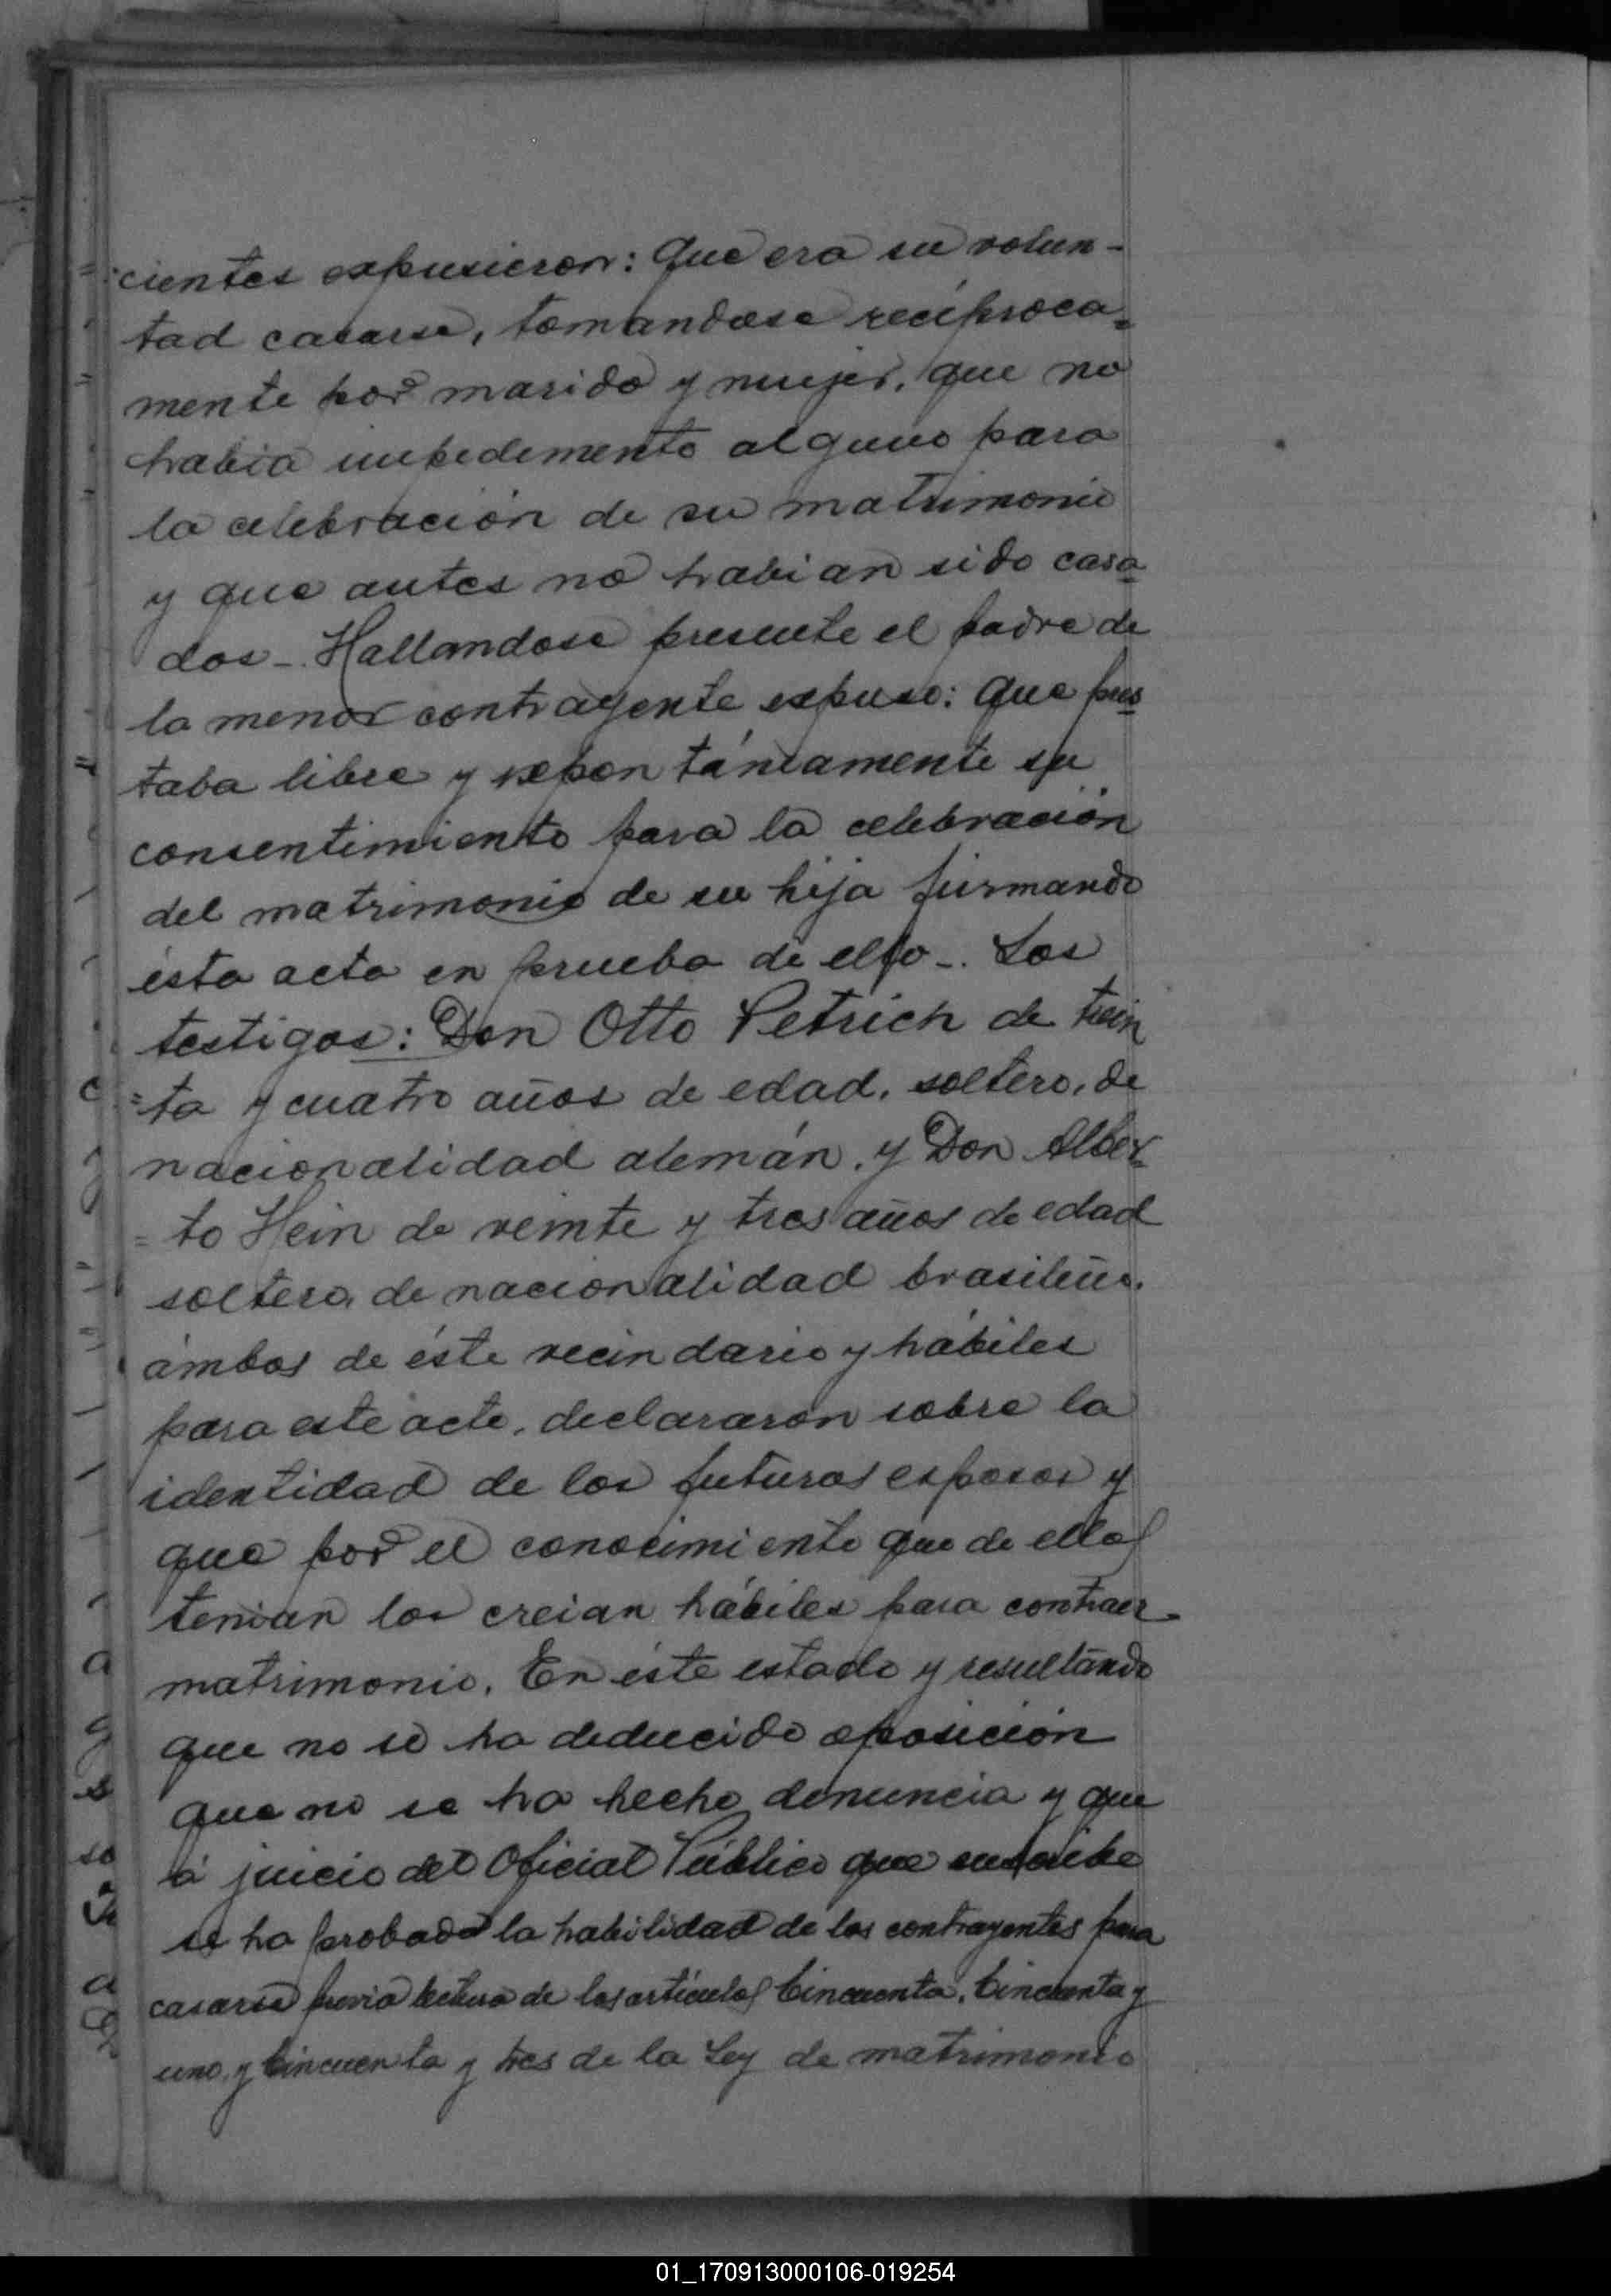 cientes expusieron: Que era su volun-
tad casarse, tomandose recíproca=
mente por marido y mujer, que no
habia impedimento alguno para
la celebración de su matrimonio
y que antes no habian sido casa
dos-. Hallandose presente el padre de
la menor contrayente expuso: Que pres
taba libre y espontáneamente su
consentimiento para la celebración
del matrimonio de su hija firmando
ésta acta en prueba de ello-. Los
testigos: Don Otto Petrich de trein
=ta y cuatro años de edad, soltero, de
nacionalidad alemán, y Don Alber=
=to Hein de veinte y tres años de edad
soltero, de nacionalidad brasileño.
ámbos de éste vecindario y hábiles
para este acto, declararon sobre la
identidad de los futuros esposos y
que por el conocimiento que de ellos
tenian los creian hábiles para contraer
matrimonio. En éste estado y resultando
que no se ha deducido oposición
que no se ha hecho denuncia y que
á juicio del Oficial Público que suscribe
se ha probado la habilidad de los contrayentes para
casarse previa lectura de los artículos Cincuenta, Cincuenta y
uno, y Cincuenta y tres de la Ley de matrimonio
01_170913000106-019254